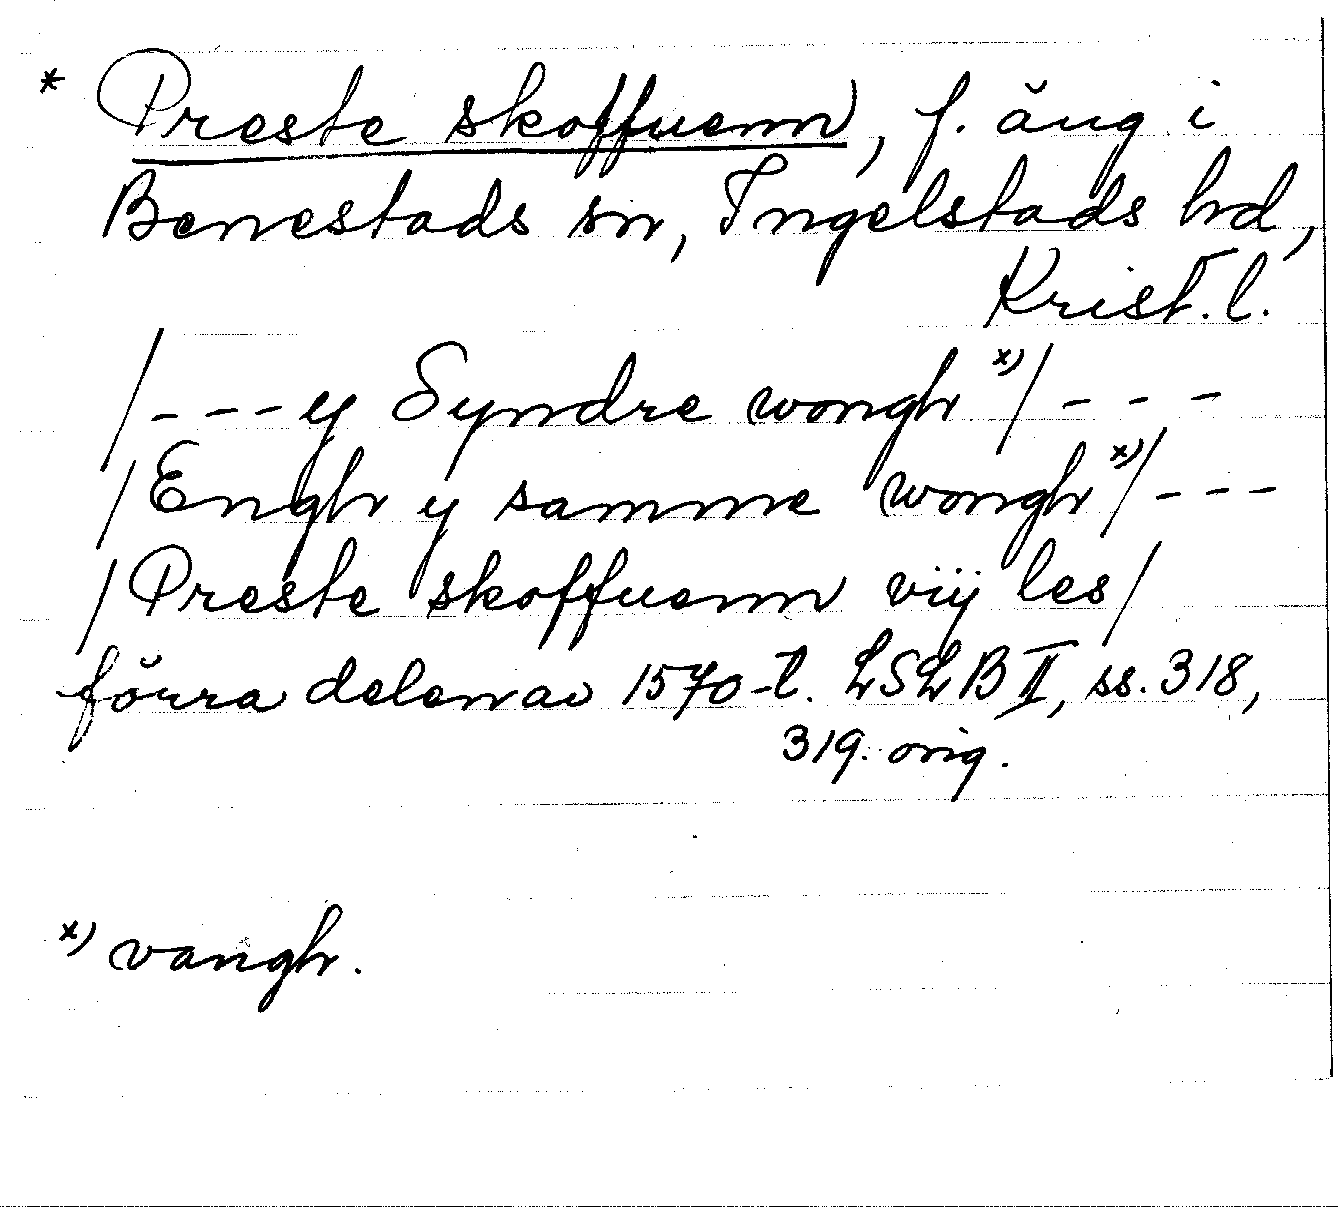 * Preste skoffuenn, f. äng i
Benestads sn, Ingelstads hd,
Krist. l.
/---y Syndre wongh x)/---
/Engh y samme wongh x)/---
/Preste skoffuenn vij les/
förra delen av 1570-t. LSLB II, ss. 318,
319. orig.
x) vangh.